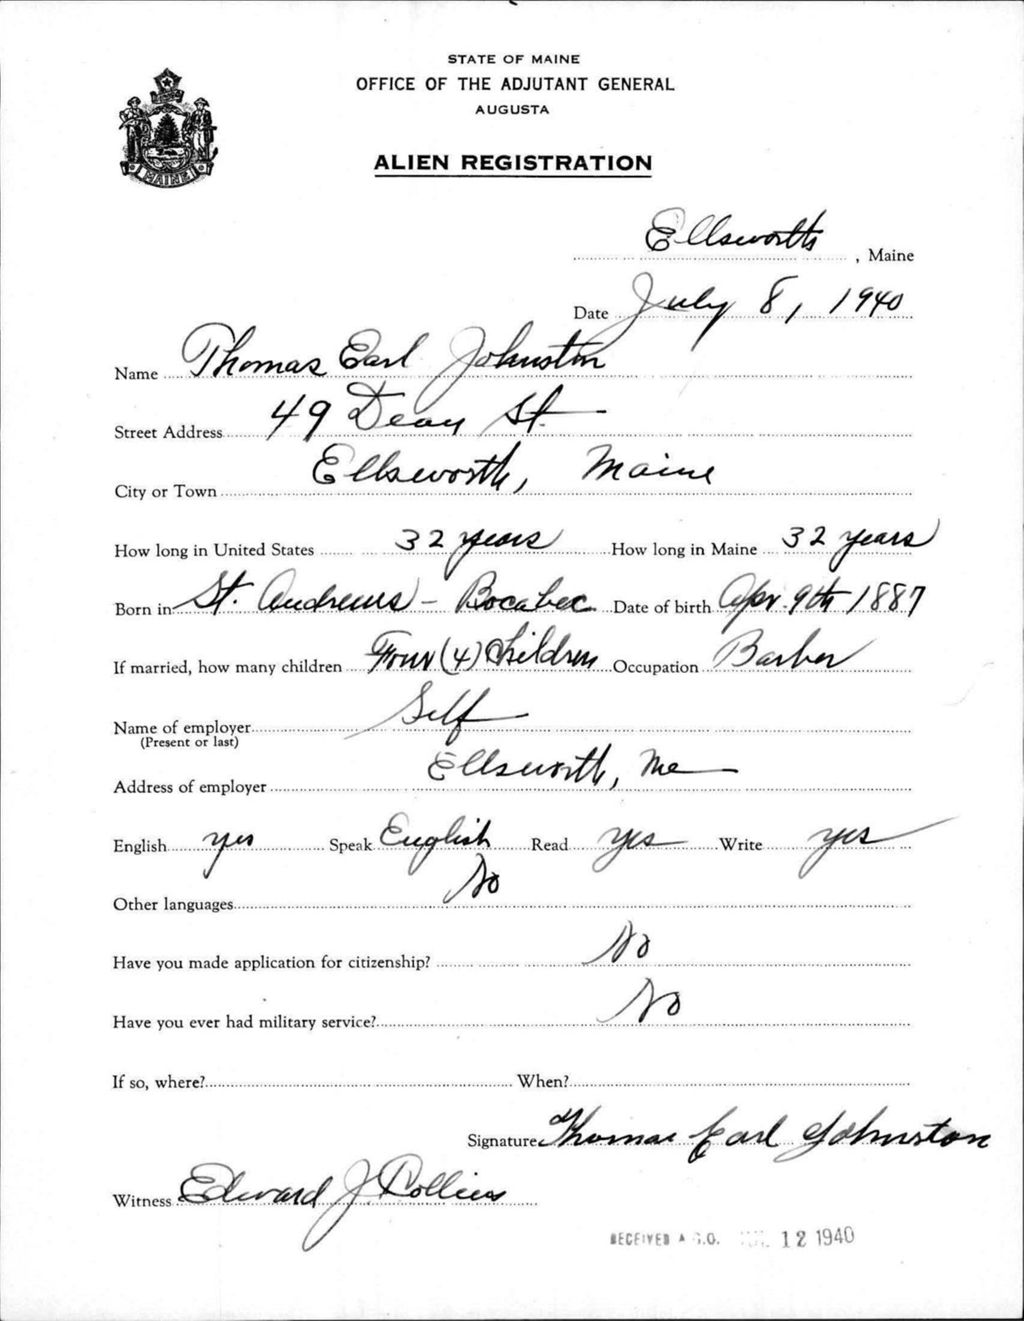 STATE OF MAINE
OFFICE OF THE ADJUTANT GENERAL
AUGUSTA
MAINE
ALIEN REGISTRATION
Ellsworth, Maine
Date July 8, 1940
Name Thomas Earl Johnston
Street Address 49 Dean St.
City or Town Ellsworth, Maine
How long in United States 32 years How long in Maine 32 years
Born in St. Andrews - Bocabec Date of birth Apr 9th 1887
If married, how many children Four (4) Children Occupation Barber
Name of employer Self
(Present or last)
Address of employer Ellsworth, Me
English yes Speak English Read yes Write yes
Other languages No
Have you made application for citizenship? No
Have you ever had military service? No
If so, where? When?
Signature Thomas Earl Johnston
Witness Edward J. Collins
RECEIVED A.G.O. 12 1940